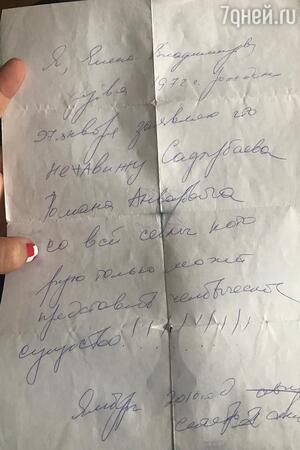 7дней.ru
Я, Владимировну
1972 г.
27. января заявляю что
ненавижу Садырбаева
Романа Анваровича
со всей силы кото
рую только может
представить человеческое
существо!!!!!!!!!
Ямбург 2010 год